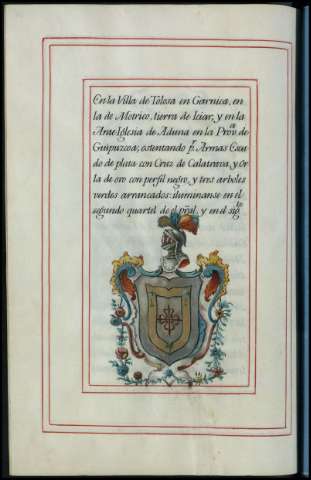 En la Villa de Tolosa en Garnica, en
la de Motrico, tierra de Iciar, y en la
Ante Iglesia de Aduna en la Prov.ª de
Guipuzcoa; ostentando p.r Armas Escu
do de plata con Cruz de Calatrava, y Or
la de oro con perfil negro, y tres arboles
verdes arrancados: iluminanse en el
segundo quartel de el pral, y en el sig.te